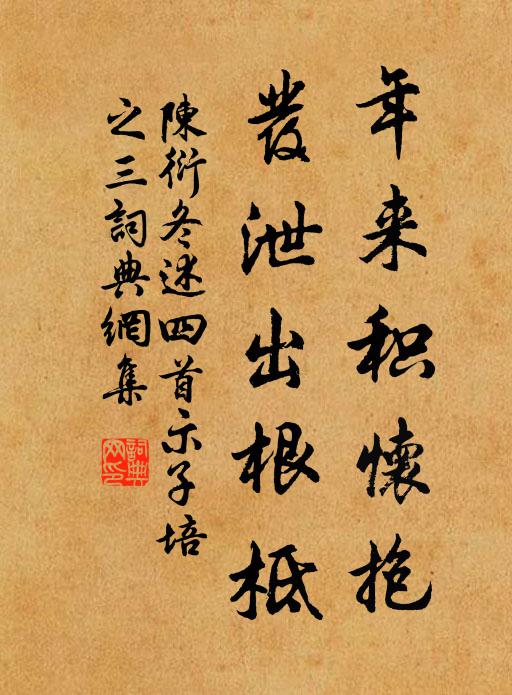 年来积懷抱
發泄出根柢
陳衍冬述四首示子培
之三詞典網集
詞典網印